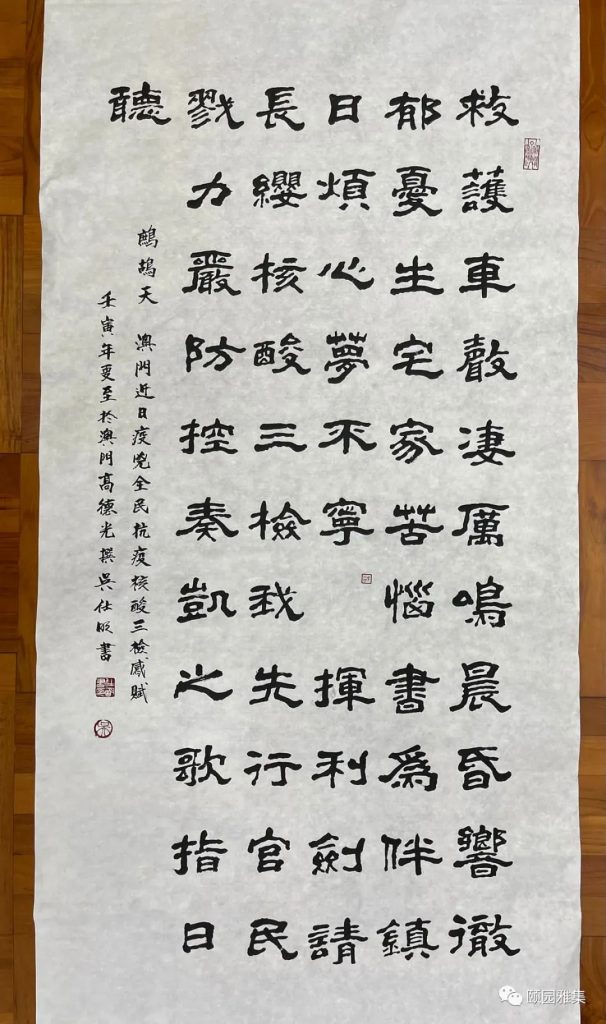 救護車聲凄厲鳴晨昏響徹
郁憂生宅家苦惱書爲伴鎮
日煩心夢不寧 揮利劍請
長纓核酸三檢我先行官民
戮力嚴防控奏凱之歌指日
聽
鷓鴣天 澳門近日疫兇全民抗疫核酸三檢感賦
壬寅年夏至於澳門高德光撰吳仕書
颐园雅集